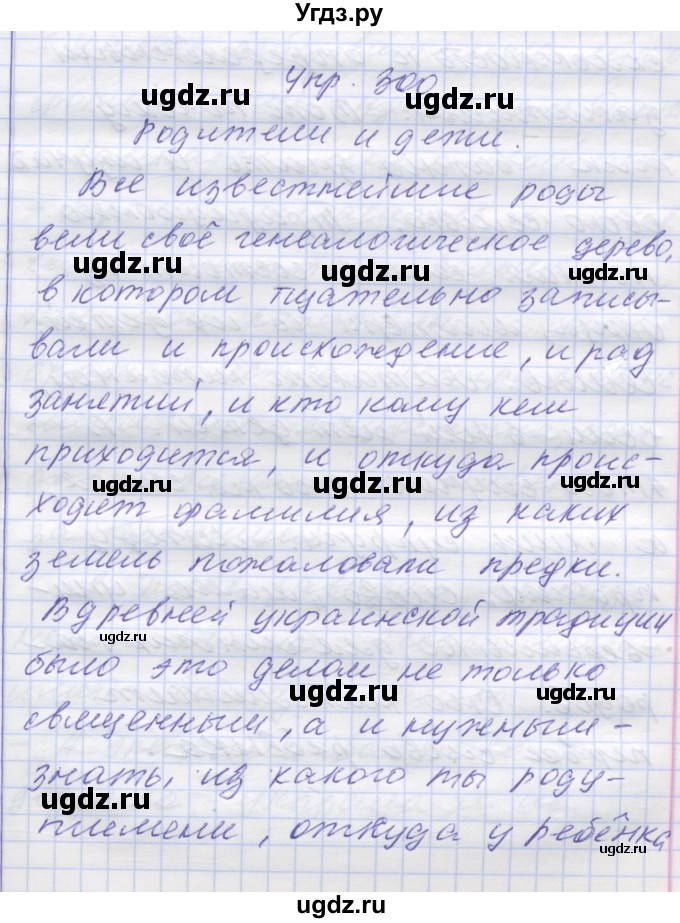 Угдз.ру
Упр. 300
ugdz.ru ugdz.ru
Родители и дети.
Все известнейшие роды
вели своё генеалогическое дерево,
ugdz.ru ugdz.ru ugdz.ru
в котором тщательно записы-
вали и происхождение, и рад
ugdz.ru ugdz.ru
занятий, и кто кому кем
приходится, и откуда проис-
ugdz.ru ugdz.ru ugdz.ru
ходит фамилия, из каких
земель пожаловали предки.
ugdz.ru ugdz.ru
В древней украинской традиции
ugdz.ru
было это делом не только
ugdz.ru ugdz.ru
священным, а и нужным -
знать, из какого ты роду-
ugdz.ru ugdz.ru
племени, откуда у ребёнка
ugdz.ru
ugdz.ru